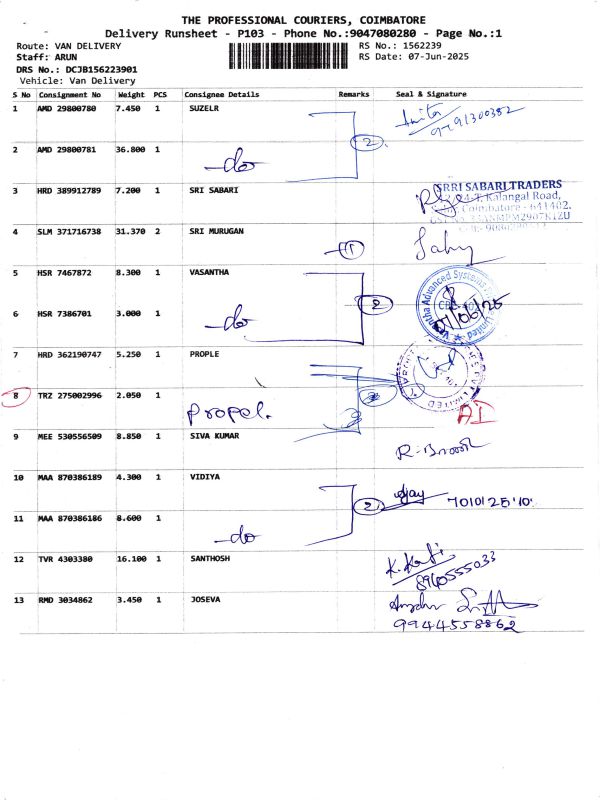 THE PROFESSIONAL COURIERS, COIMBATORE
Delivery Runsheet - P103 - Phone No.:9047080280 - Page No.:1
Route: VAN DELIVERY
Staff: ARUN
DRS No.: DCJB156223901
Vehicle: Van Delivery
RS No.: 1562239
RS Date: 07-Jun-2025
S No Consignment No Weight PCS Consignee Details Remarks Seal & Signature
1 AMD 29800780 7.450 1 SUZELR Anita
9791300382
2
2 AMD 29800781 36.800 1 -do
3 HRD 389912789 7.200 1 SRI SABARI
SRRI SABARI TRADERS
Kalangal Road,
Coimbatore - 641402.
4 SLM 371716738 31.370 2 SRI MURUGAN
5 HSR 7467872 8.300 1 VASANTHA 2
Advanced Systems
07/06/25
6 HSR 7386701 3.000 1 -do
7 HRD 362190747 5.250 1 PROPLE
LIMITED
8 TRZ 275002996 2.050 1 Propel.
9 MEE 530556509 8.850 1 SIVA KUMAR R.
10 MAA 870386189 4.300 1 VIDIYA 2
11 MAA 870386186 8.600 1 -do
12 TVR 4303380 16.100 1 SANTHOSH
8940555033
13 RMD 3034862 3.450 1 JOSEVA
9944558862